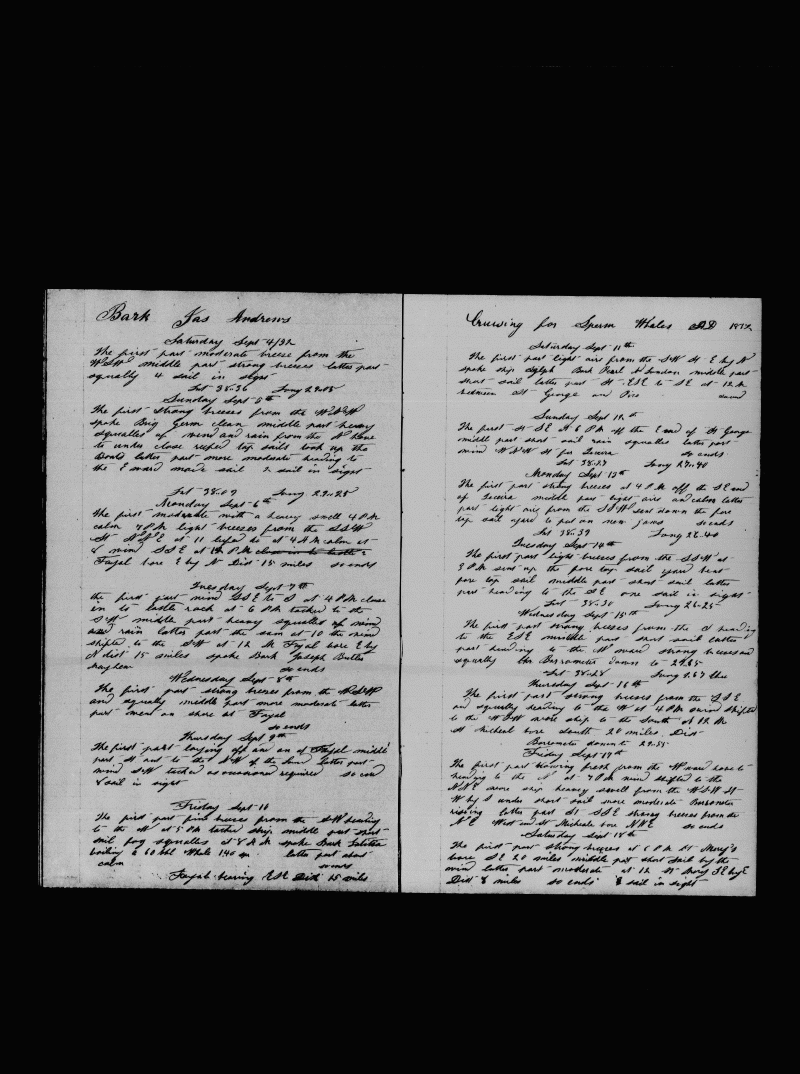 Bark Jas Andrews
Saturday Sept 4/32
The first part moderate breeze from the
WSW middle part strong breezes latter part
squally 4 sail in sight
Lat 38.36 Long 29.08
Sunday Sept 5th
The first strong breezes from the WSW
spoke Brig Germ clean middle part heavy
squalles of wind and rain from the N hove
to under close reefed top sails took up the
Boats latter part more moderate heading to
the E ward made sail 2 sail in sight
Lat 38.09 Long 29.25
Monday Sept 6th
The first moderate with a heavy swell 4 PM
calm 7 PM light breezes from the SSW
St at 11 at 4 AM calm at
8 wind SSE at 12 PM
Fayal bore E by N Dist 15 miles so ends
Tuesday Sept 7th
the first part wind SSE to S at 4 PM close
in to castle rock at 6 PM tacked to the
SW middle part heavy squalles of wind
and rain latter part the sam at 10 the wind
shifted to the SW at 12 M Fayal bore E by
N dist 15 miles spoke Bark Joseph Butler
Mayhew so ends
Wednesday Sept 8th
The first part strong breezes from the WSW
and squally middle part more moderate latter
part went on shore at Fayal
so ends
Thursday Sept 9th
The first part laying off and on of Fayal middle
part St to the SW of the latter part
wind SW tacked as occasions required so end
4 sail in sight
Friday Sept 10
The first part fine breezes from the SW heading
to the W at 5 PM tacked ship middle part short
sail fog squalles at 8 AM spoke Bark
boiling a 60 bbl Whale 140
latter part short
calm so ends
Fayal bearing ESE Dist 15 miles
Cruising for Sperm Whales AD 1852
Saturday Sept 11th
The first part light airs from the SW St E by N
spoke ship Bark Pearl middle part
short sail latter part St ESE to SE at 12 M
between St George and Pico
Sunday Sept 12th
The first St SE At 6 PM off the E end of St George
middle part short sail rain squalles latter part
wind WSW St for so ends
Lat 38.27 Long 27.40
Monday Sept 13th
The first part strong breezes at 4 PM off the SE end
of middle part light airs and calm latter
part light airs from the SSW sent down the fore
top sail yard to put on new so ends
Lat 38.39 Long 26.40
Tuesday Sept 14th
The first part light breezes from the SSW at
3 PM sent up the fore top sail yard bent
fore top sail middle part short sail latter
part heading to the SE one sail in sight
Lat 38.30 Long 26.25
Wednesday Sept 15th
The first part strong breezes from the S heading
to the ESE middle part short sail latter
part heading to the N ward strong breezes and
squally the Barrometer down to 29.65
Lat 38.28 Long
Thursday Sept 16th
The first part strong breezes from the SSE
and squally heading to the W at 4 PM wind shifted
to the WSW wore ship to the South at 12 M
St Micheal bore South 20 miles Dist
Barrometer down to 29.55
Friday Sept 17th
The first part blowing fresh from the W ward hove to
heading to the N at 7 PM wind shifted to the
NNE wore ship heavy swell from the WSW St
W by S under short sail more moderate Barometer
rising latter part St SSE strong breezes from the
N E West end St Micheals bore NNE so ends
Saturday Sept 18th
The first part strong breezes at 6 PM St Mary's
bore SE 20 miles middle part short sail by the
wind latter part moderate at 12 St Mary SE by E
Dist 8 miles so ends 8 sail in sight